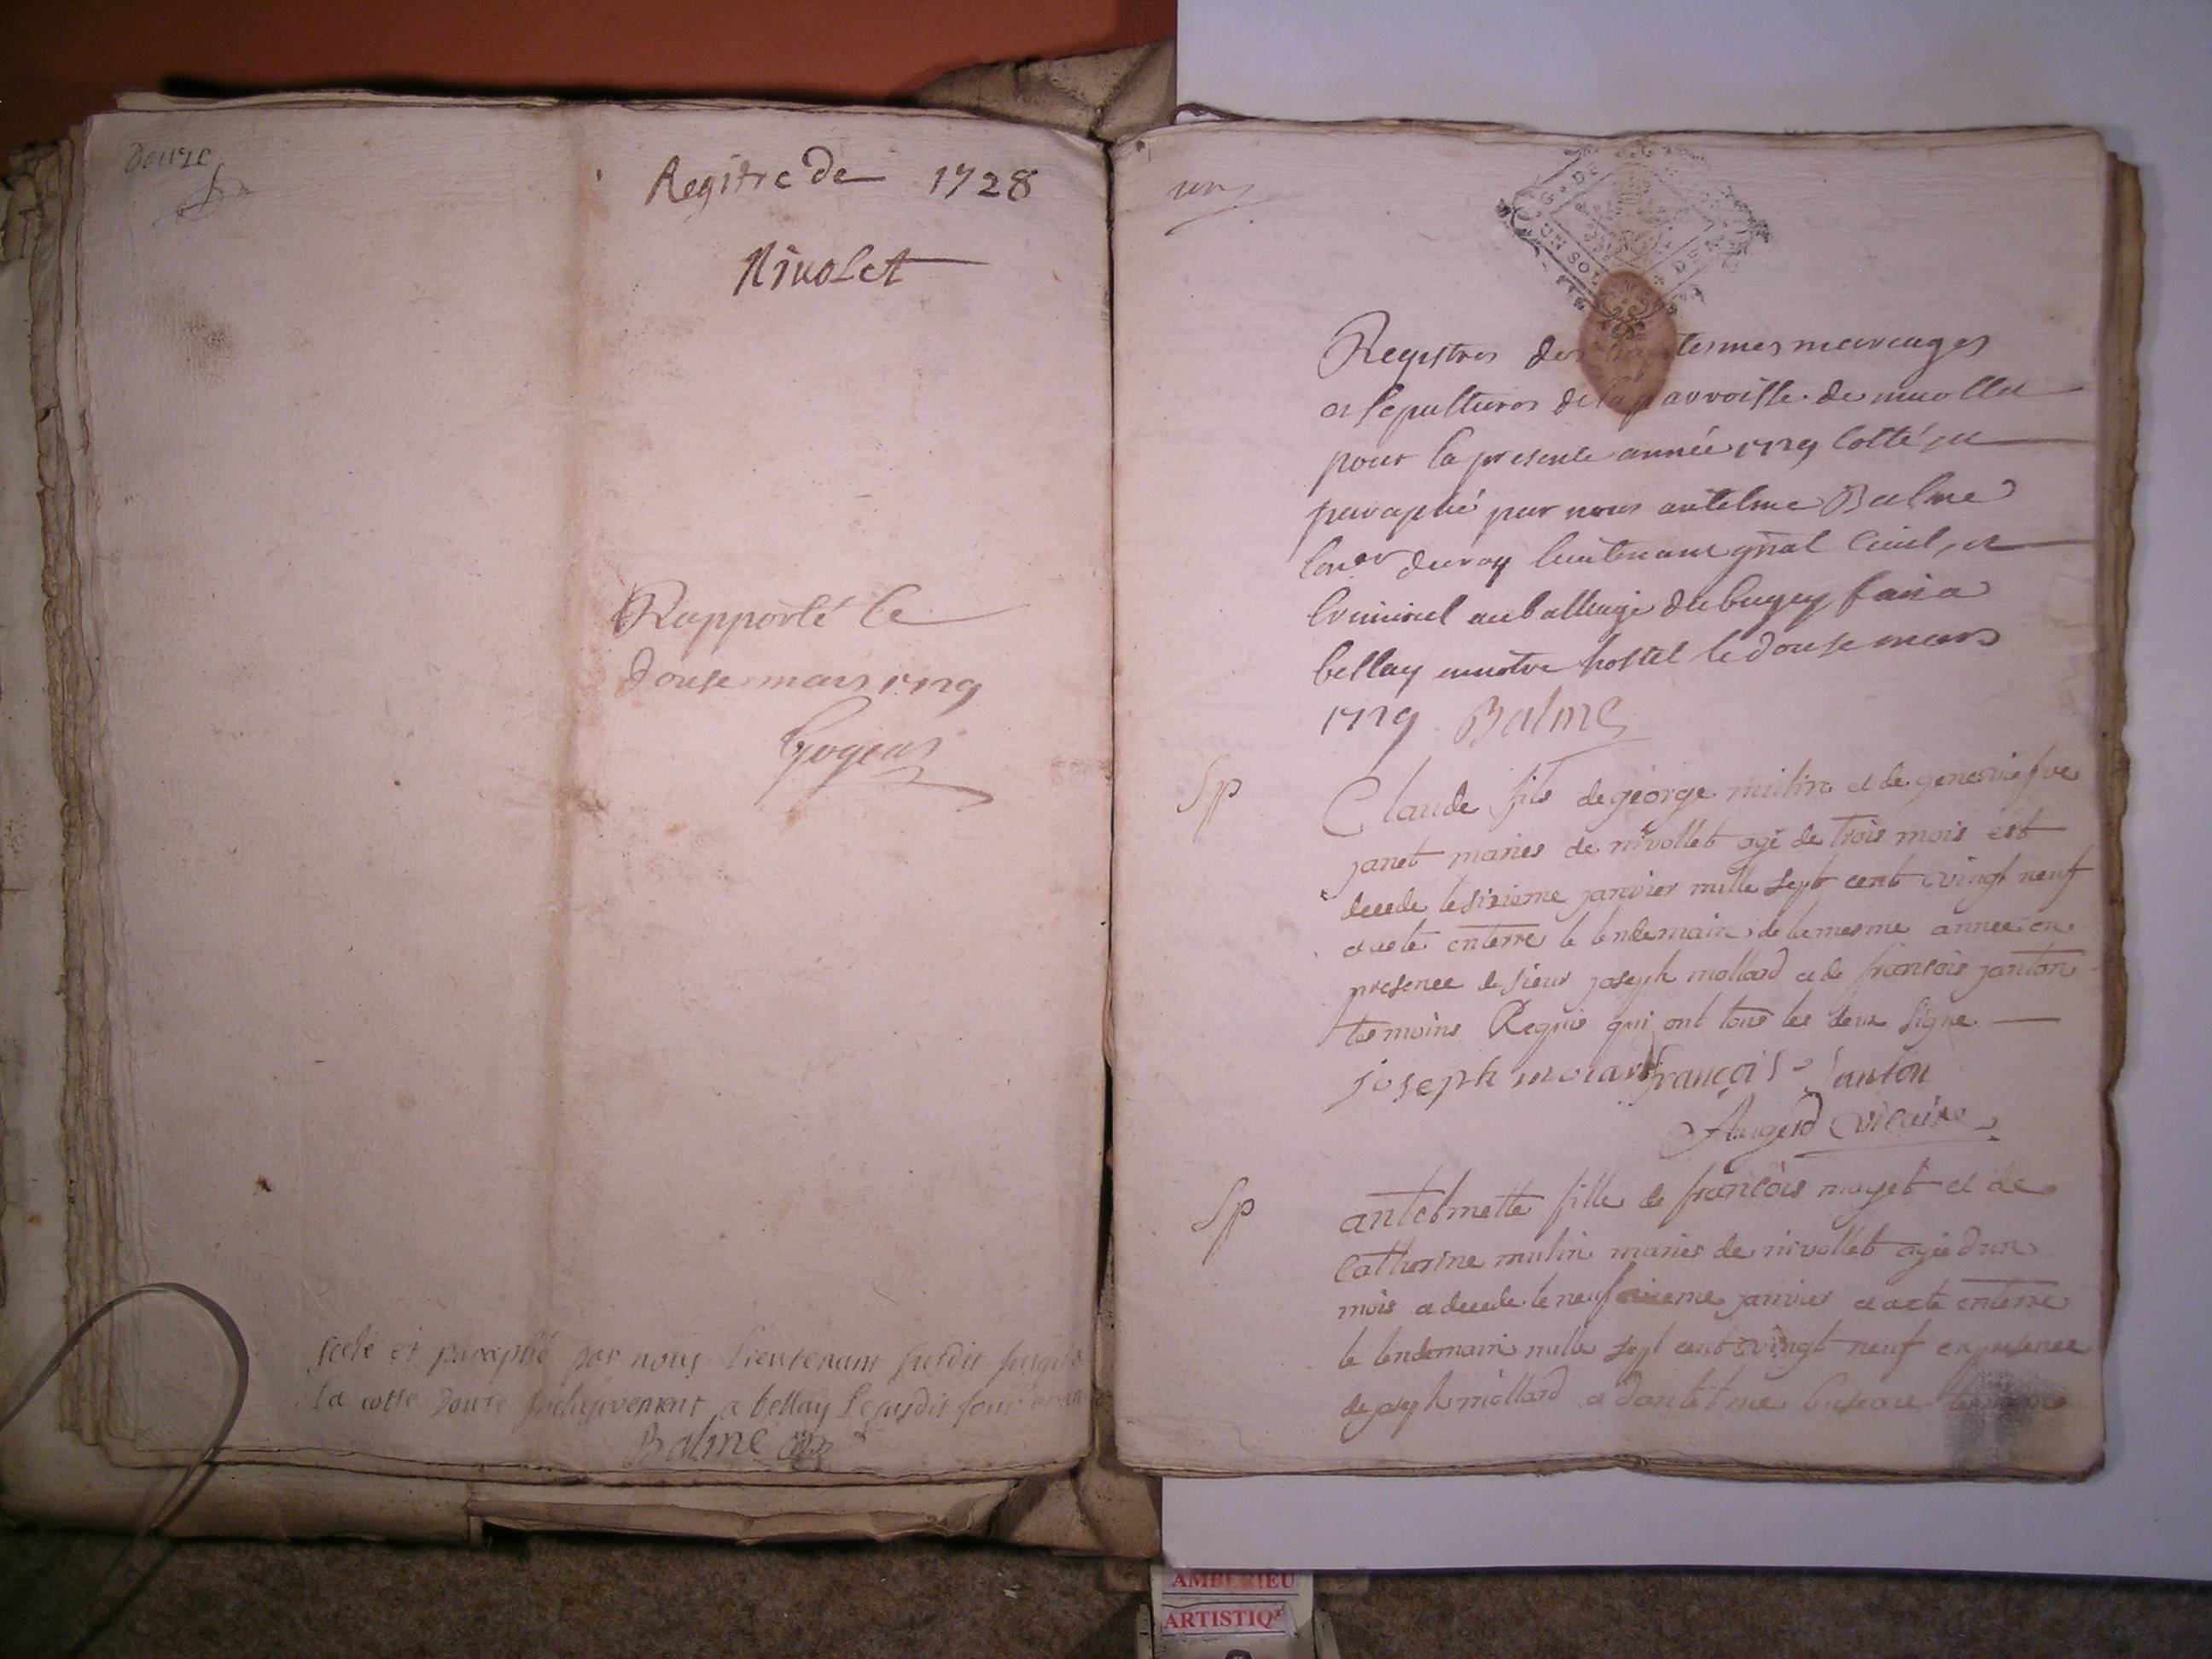 douze
Regitre de 1728
Nivolet
Rapporté le
douse mars 1729
scelé et paraphé par nous Lieutenant susdit jusqu'a
la cotte douze inclusivement a bellay le susdit jour et an
Balme
un
UN SOL
DEN
Registres des tesmes mariages
et sepultures de la parroisse de nivollet
pour la presente année 1729 cotté et
paraphé par nous antelme Balme
Con.er du roy lieutenant gñal Civil, et
Criminel au balliage du bugey fait a
bellay en notre hostel le douse mars
1729 Balme
Sp
Claude fils de george mulin et de geneviefve
janet maries de nivollet agé de trois mois est
decede le sixieme janvier mille sept cent vingt neuf
et a eté enterre le lendemain de la mesme annee en
presence de sieur joseph mollard et de francois janton
tesmoins Requis qui ont tous les deux signe
joseph molard françois Janton
Augerd vicaire
Sp
antelmette fille de francois mayet et de
Catherine mulin maries de nivollet agée d'un
mois a decede le janvier et a ete enterre
le lendemain mille sept cent vingt neuf en presence
de joseph mollard et d'antelme tesmoins
AMBERIEU
ARTISTIQ